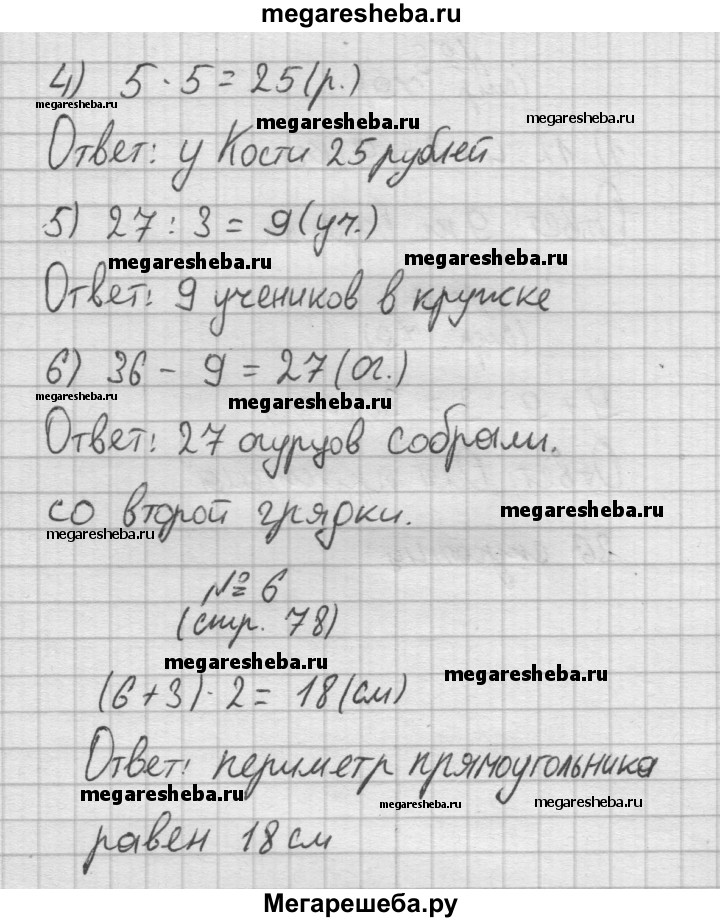 megaresheba.ru
4) 5 · 5 = 25 (р.)
megaresheba.ru megaresheba.ru megaresheba.ru
Ответ: у Кости 25 рублей
5) 27 : 3 = 9 (уч.)
megaresheba.ru megaresheba.ru
Ответ: 9 учеников в кружке
6) 36 - 9 = 27 (ог.)
megaresheba.ru megaresheba.ru megaresheba.ru
Ответ: 27 огурцов собрали.
со второй грядки.
megaresheba.ru megaresheba.ru
№ 6
(стр. 78)
megaresheba.ru megaresheba.ru
(6 + 3) · 2 = 18 (см)
Ответ: периметр прямоугольника
megaresheba.ru megaresheba.ru megaresheba.ru
равен 18 см
Мегарешеба.ру